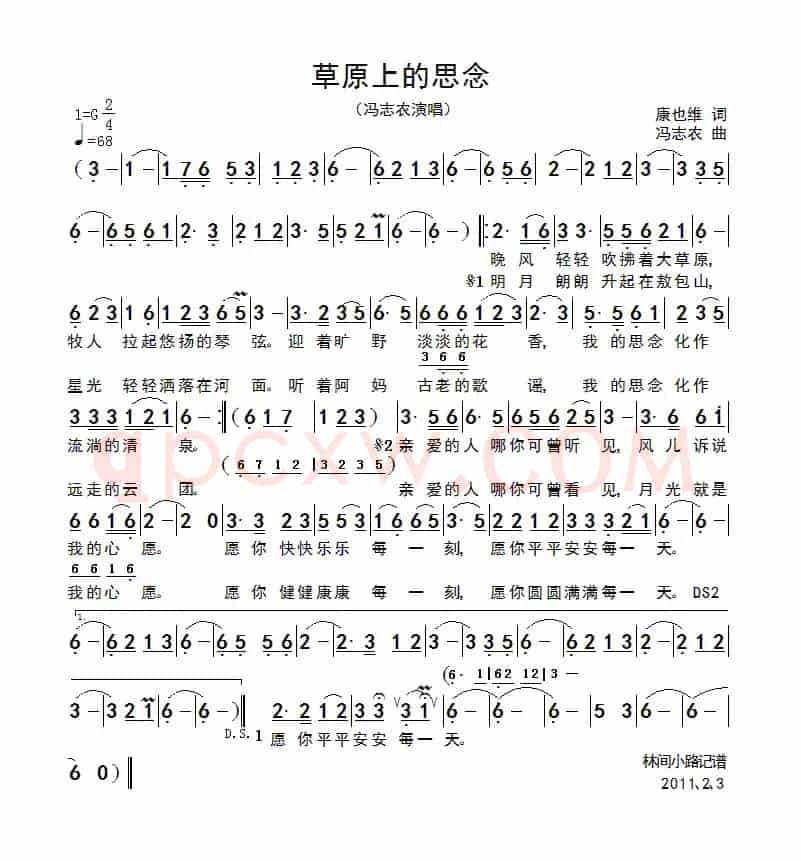 草原上的思念
（冯志农演唱）
1=G 2/4
♩=68
康也维 词
冯志农 曲
（3 – 1 – 1 7 6 5 3 1 2 3 6 – 6 2 1 3 6 – 6 5 6 2 – 2 1 2 3 – 3 3 5
6 – 6 5 6 1 2· 3 2 1 2 3· 5 5 2 1 6 – ） 2· 1 6 3 3 5 5 6 2 1 6 –
晚 风 轻轻 吹拂着大草原,
※1 明 月 朗朗 升起在敖包山,
6 2 3 1 6 1 2 3 6 5 3 – 3· 2 3 5 6· 5 6 6 6 1 2 3 2· 3 5· 5 6 1 2 3
牧人 拉起悠扬的琴 弦。迎 着旷 野 淡淡的花 香, 我 的思念 化作
3 6 6
星光 轻轻洒落在河 面。听 着阿 妈 古老的歌 谣, 我 的思念 化作
3 3 3 1 2 1 6 – （6 1 7 1 2 3） 3· 5 6 6· 5 6 5 6 2 5 3 – 3· 6 6 1
流淌的清 泉。 ※2 亲 爱的人 哪你可曾听 见, 风儿 诉说
（6 7 1 2 3 2 3 5）
远走的云 团。 亲 爱的人 哪你可曾看 见, 月光 就是
6 6 1 6 2 – 2 0 3· 3 2 3 5 3 5 1 6 6 5 3· 5 2 2 1 2 3 3 3 2 1 6 – 6 –
我的心 愿。 愿 你 快快乐乐 每 一 刻, 愿你平平安安每一 天。
6 6 1 6
我的心 愿。 愿 你 健健康康 每 一 刻, 愿你圆圆满满每一 天。DS2
1.
6 – 6 2 1 3 6 – 6 5 5 6 2 – 2· 3 1 2 3 6 – 6 – 6 2 1 3 2 – 2 1 2
（6· 1 6 2 1 2 3 –
3 – 3 2 1 6 – 6 – ） 2· 2 1 2 3 3 3 1 6 – 6 – 6 – 5 3 6 –
D.S. 1 愿 你 平平安安 每一 天。
6 0）
林间小路记谱
2011、2、3
qpcxw.COM